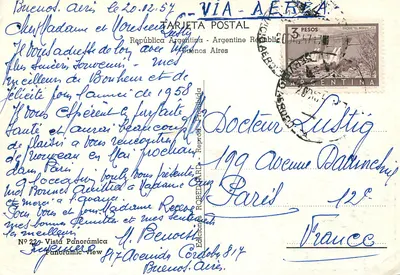 Buenos Aires le 20.12.57
VIA AEREA
TARJETA POSTAL
República Argentina - Argentine Republic
Buenos Aires
Cher Madame et Monsieur Lustig
Je vous adresse de loin, avec mes
plus sincères souvenirs, mes
meilleurs de Bonheur et de
félicité pour l'année de 1958
Je vous espère en parfaite
santé et aurai beaucoup
de plaisir a vous rencontrer
de nouveau en Mai prochain
dans Paris
3
PESOS
ARGENTINA
Docteur Lustig
199 Avenue Daumesnil
Paris 12e
France
Pour vous et pour Madame
mes bonnes et mes sentiments
les meilleurs
M. Benoist
817 Avenida Cordoba 817
Buenos Aires
Nº 22 - Vista Panorámica
Panoramic View